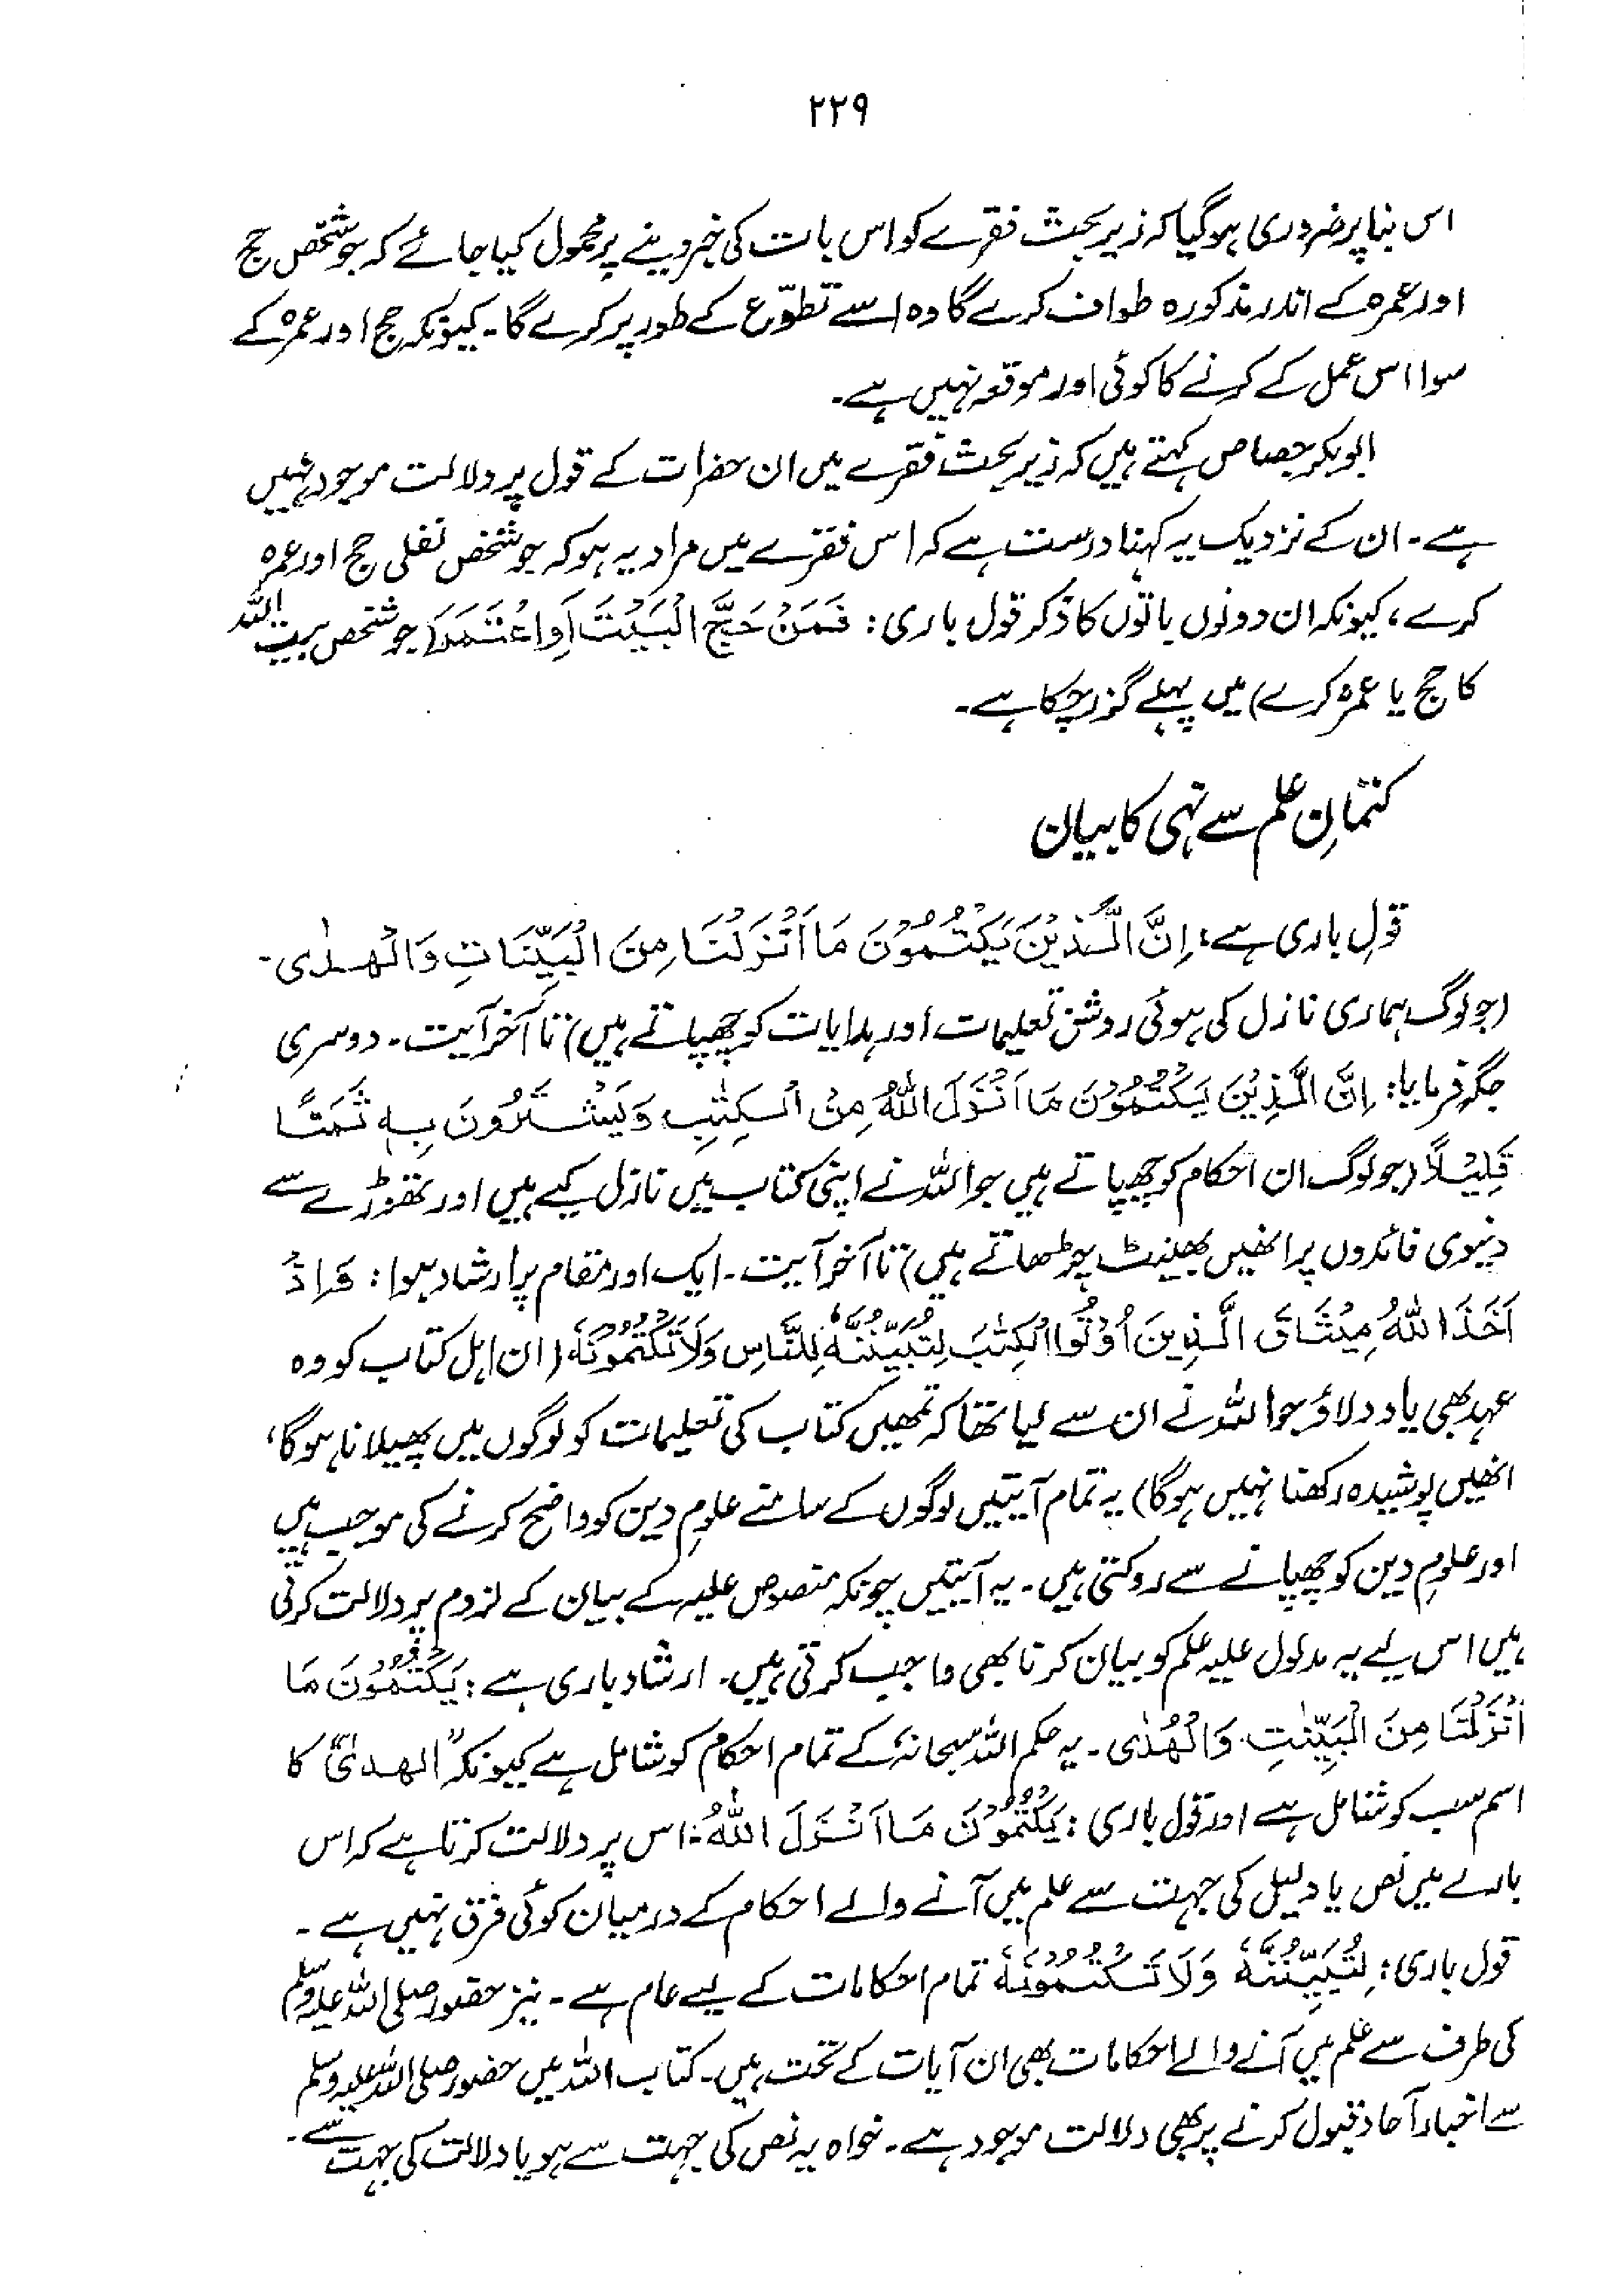 ۲۲۹
اس بنا پر ضروری ہو گیا کہ زیر بحث فقرے کو اس بات کی خبر دینے پر محمول کیا جائے کہ جو شخص حج
اور عمرہ کے اندر مذکورہ طواف کرے گا وہ اسے تطوّع کے طور پر کرے گا۔ کیونکہ حج اور عمرہ کے
سوا اس عمل کے کرنے کا کوئی اور موقعہ نہیں ہے۔
ابوبکر جصاص کہتے ہیں کہ زیر بحث فقرے میں ان حضرات کے قول پر دلالت موجود نہیں
ہے۔ ان کے نزدیک یہ کہنا درست ہے کہ اس فقرے میں مراد یہ ہو کہ جو شخص نفلی حج اور عمرہ
کرے، کیونکہ ان دونوں باتوں کا ذکر قول باری: فَمَنْ حَجَّ الْبَيْتَ اَوِاعْتَمَرَ (جو شخص بیت اللہ
کا حج یا عمرہ کرے) میں پہلے گزر چکا ہے۔
کتمانِ علم سے نہی کا بیان
قولِ باری ہے: اِنَّ الَّذِيْنَ يَكْتُمُوْنَ مَا اَنْزَلْنَا مِنَ الْبَيِّنَاتِ وَالْهُدٰى۔
(جو لوگ ہماری نازل کی ہوئی روشن تعلیمات اور ہدایات کو چھپاتے ہیں) تا آخر آیت۔ دوسری
جگہ فرمایا: اِنَّ الَّذِيْنَ يَكْتُمُوْنَ مَا اَنْزَلَ اللّٰهُ مِنَ الْكِتٰبِ وَيَشْتَرُوْنَ بِهٖ ثَمَنًا
قَلِيْلًا (جو لوگ ان احکام کو چھپاتے ہیں جو اللہ نے اپنی کتاب میں نازل کیے ہیں اور تھوڑے سے
دنیوی فائدوں پر انھیں بھینٹ چڑھاتے ہیں) تا آخر آیت۔ ایک اور مقام پر ارشاد ہوا: وَاِذْ
اَخَذَ اللّٰهُ مِيْثَاقَ الَّذِيْنَ اُوْتُوا الْكِتٰبَ لَتُبَيِّنُنَّهٗ لِلنَّاسِ وَلَا تَكْتُمُوْنَهٗ (ان اہل کتاب کو وہ
عہد بھی یاد دلاؤ جو اللہ نے ان سے لیا تھا کہ تمھیں کتاب کی تعلیمات کو لوگوں میں پھیلانا ہوگا،
انھیں پوشیدہ رکھنا نہیں ہوگا) یہ تمام آیتیں لوگوں کے سامنے علومِ دین کو واضح کرنے کی موجب ہیں
اور علومِ دین کو چھپانے سے روکتی ہیں۔ یہ آیتیں چونکہ منصوص علیہ کے بیان کے لزوم پر دلالت کرتی
ہیں اس لیے یہ مدلول علیہ علم کو بیان کرنا بھی واجب کرتی ہیں۔ ارشاد باری ہے: يَكْتُمُوْنَ مَا
اَنْزَلْنَا مِنَ الْبَيِّنٰتِ وَالْهُدٰى۔ یہ حکم اللہ سبحانہٗ کے تمام احکام کو شامل ہے کیونکہ "الھدیٰ" کا
اسم سب کو شامل ہے اور قول باری: يَكْتُمُوْنَ مَا اَنْزَلَ اللّٰهُ: اس پر دلالت کرتا ہے کہ اس
بارے میں نص یا دلیل کی جہت سے علم میں آنے والے احکام کے درمیان کوئی فرق نہیں ہے۔
قول باری: لَتُبَيِّنُنَّهٗ وَلَا تَكْتُمُوْنَهٗ تمام احکامات کے لیے عام ہے۔ نیز حضور صلی اللہ علیہ وسلم
کی طرف سے علم میں آنے والے احکامات بھی ان آیات کے تحت ہیں۔ کتاب اللہ میں حضور صلی اللہ علیہ وسلم
سے اخبار آحاد قبول کرنے پر بھی دلالت موجود ہے۔ خواہ یہ نص کی جہت سے ہو یا دلالت کی جہت سے۔